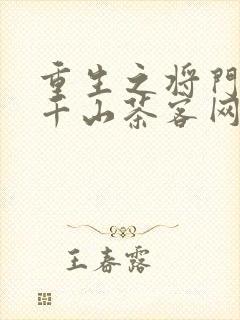 重生之将門
千山茶客网
王春露